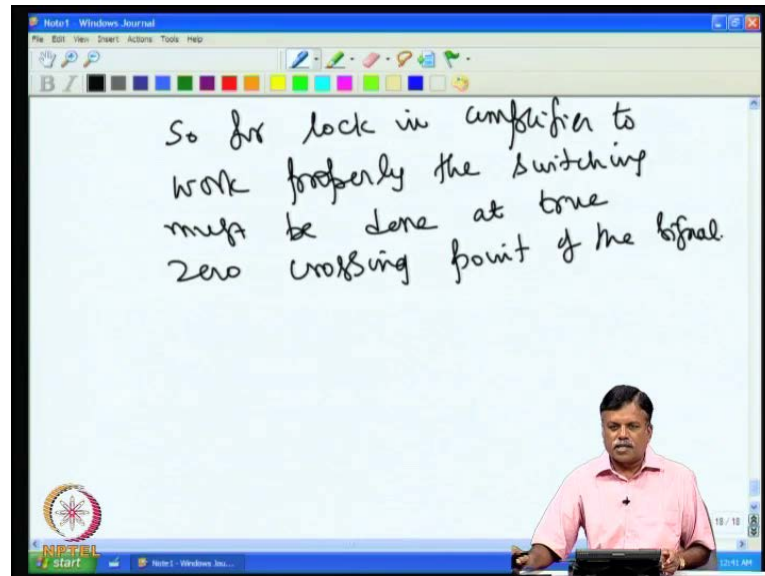 Note1 - Windows Journal
File Edit View Insert Actions Tools Help
B I
So for lock in amplifier to
work properly the switching
must be done at true
zero crossing point of the signal.
18 / 18
NPTEL
start Note1 - Windows Jou... 12:41 AM